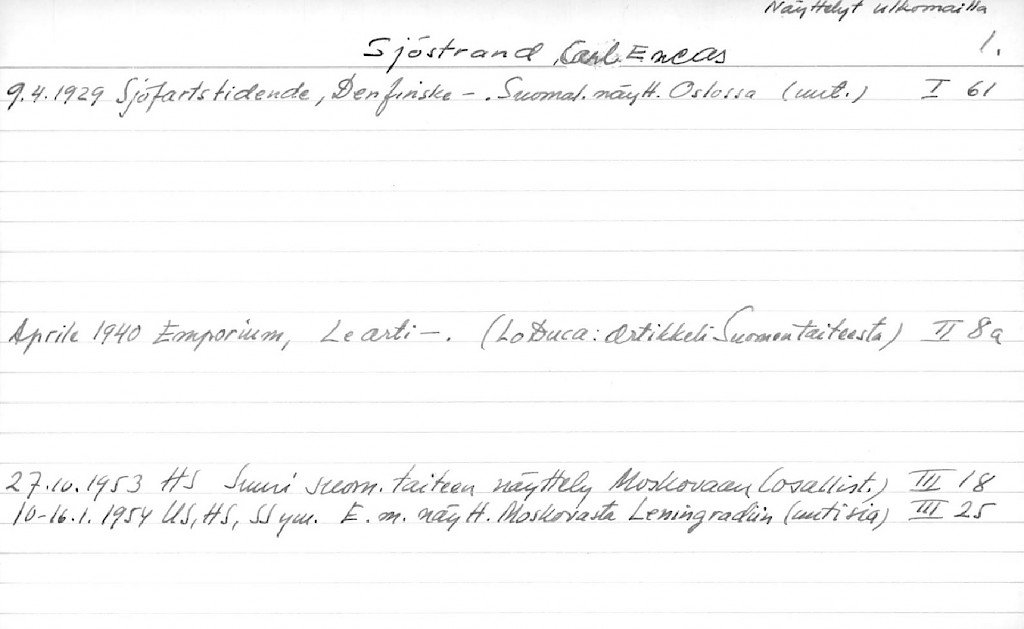 Näyttelyt ulkomailla
Sjöstrand, Carl Eneas 1.
9.4.1929 Sjöfartstidende, Den finske –. Suomal. näytt. Oslossa (uut.) I 61
Aprile 1940 Emporium, Le arti –. (Lo Duca: artikkeli Suomen taiteesta) II 8a
27.10.1953 HS Suuri suom. taiteen näyttely Moskovaan (osallist.) III 18
10-16.1.1954 US, HS, SS ym. E.m. näytt. Moskovasta Leningradiin (uutisia) III 25